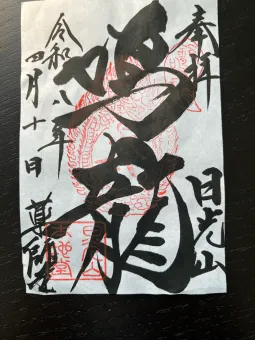 奉拝
日光山
鳴龍
令和八年
四月十日